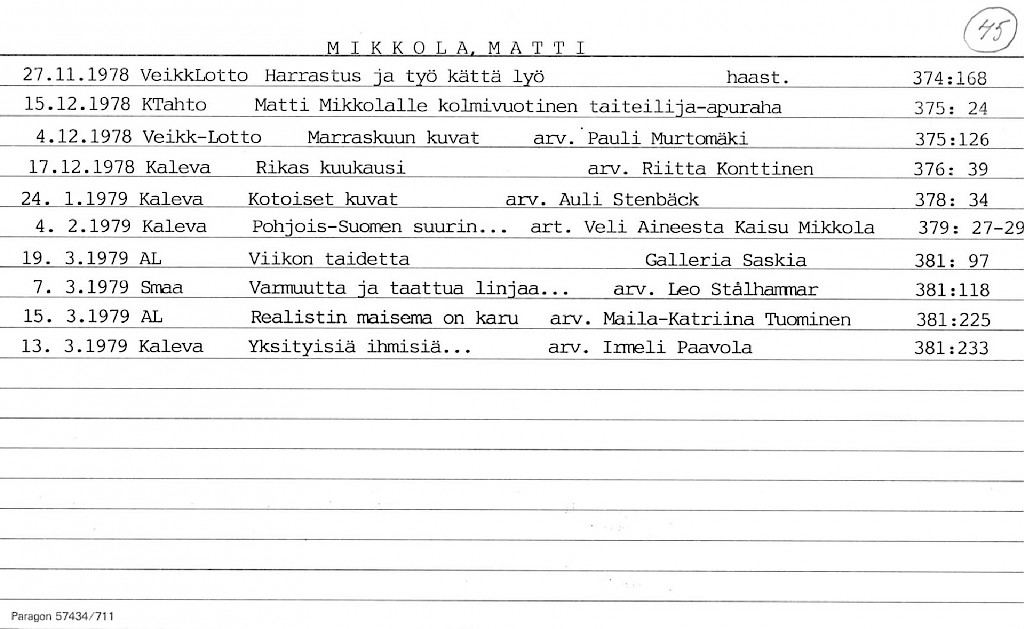 45
MIKKOLA, MATTI
27.11.1978 VeikkLotto Harrastus ja työ kättä lyö haast. 374:168
15.12.1978 KTahto Matti Mikkolalle kolmivuotinen taiteilija-apuraha 375: 24
4.12.1978 Veikk-Lotto Marraskuun kuvat arv. Pauli Murtomäki 375:126
17.12.1978 Kaleva Rikas kuukausi arv. Riitta Konttinen 376: 39
24. 1.1979 Kaleva Kotoiset kuvat arv. Auli Stenbäck 378: 34
4. 2.1979 Kaleva Pohjois-Suomen suurin... art. Veli Aineesta Kaisu Mikkola 379: 27-29
19. 3.1979 AL Viikon taidetta Galleria Saskia 381: 97
7. 3.1979 Smaa Varmuutta ja taattua linjaa... arv. Leo Stålhammar 381:118
15. 3.1979 AL Realistin maisema on karu arv. Maila-Katriina Tuominen 381:225
13. 3.1979 Kaleva Yksityisiä ihmisiä... arv. Irmeli Paavola 381:233
Paragon 57434/711